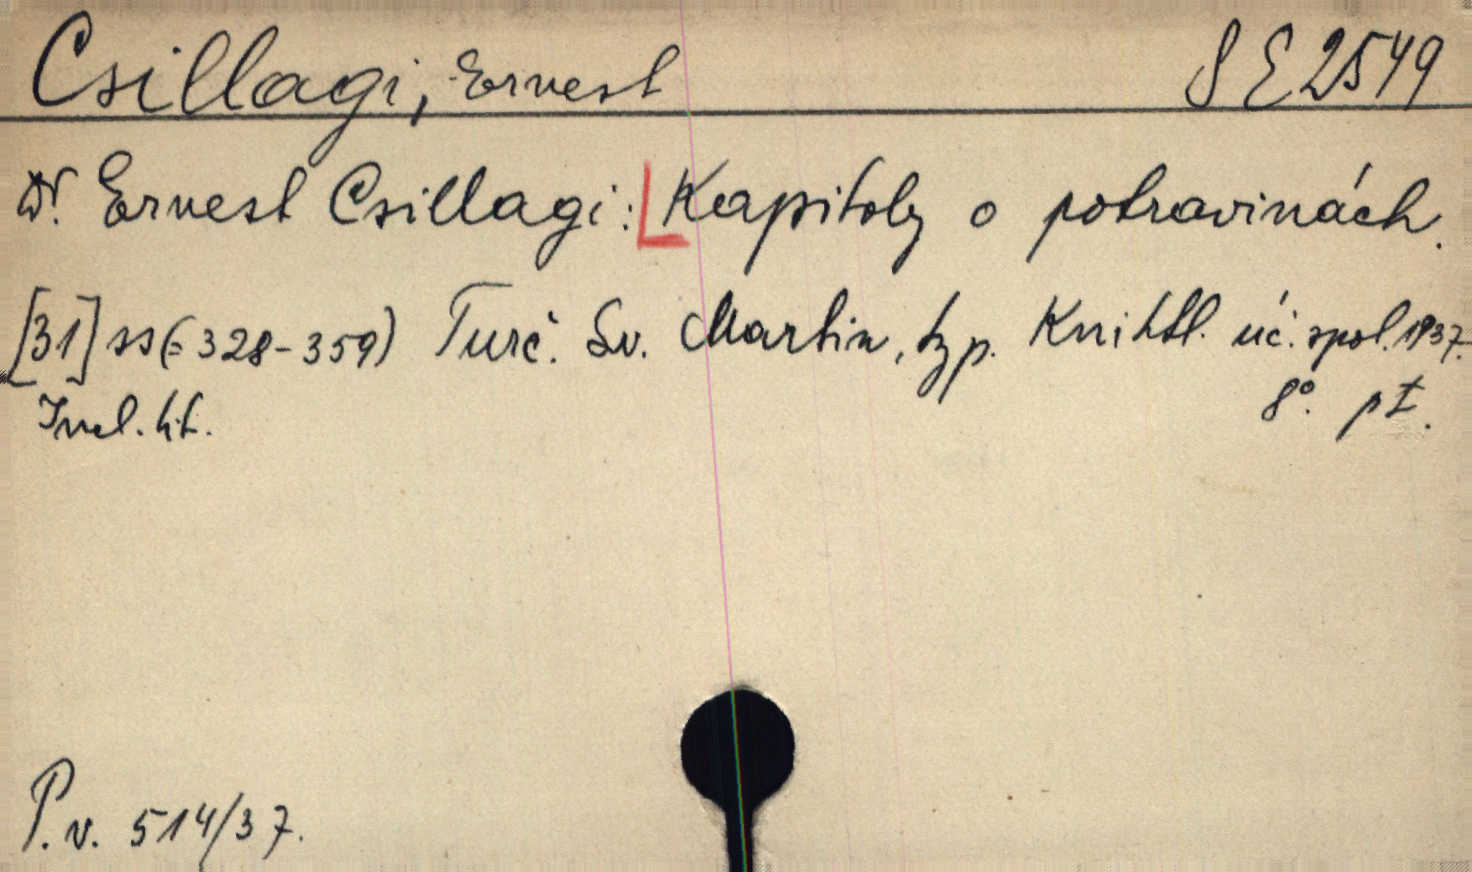 Csillagi, Ernest S E 2549
Dr. Ernest Csillagi: Kapitoly o potravinách.
[31] ss (= 328-359) Turč. Sv. Martin, typ. Knihtl. úč. spol. 1937.
Incl. tit. 8°. pI.
P. v. 514/37.